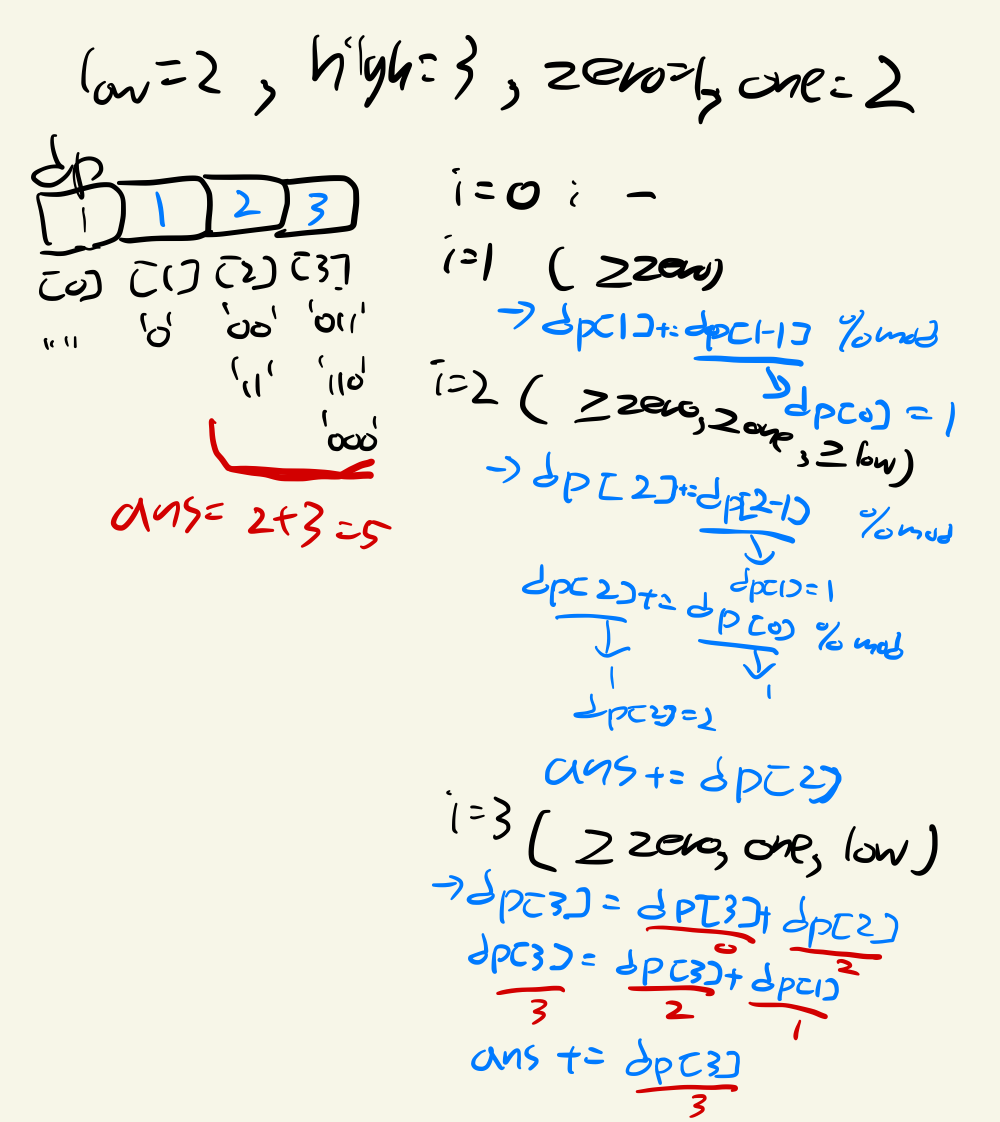 low=2 , high=3 , zero=1, one=2
dp
1 1 2 3
[0] [1] [2] [3]
"" '0' '00' '011'
'11' '110'
'000'
ans= 2+3=5
i=0 : -
i=1 ( ≥zero)
→ dp[1]+=dp[1-1] %mod
dp[0] = 1
i=2 ( ≥zero, ≥one, ≥low)
→ dp[2]+=dp[2-1] %mod
dp[1]=1
dp[2]+= dp[0] % mod
1 1
dp[2]=2
ans += dp[2]
i=3 ( ≥ zero, one, low)
→dp[3] = dp[3]+ dp[2]
0 2
dp[3] = dp[3]+ dp[1]
3 2 1
ans += dp[3]
3